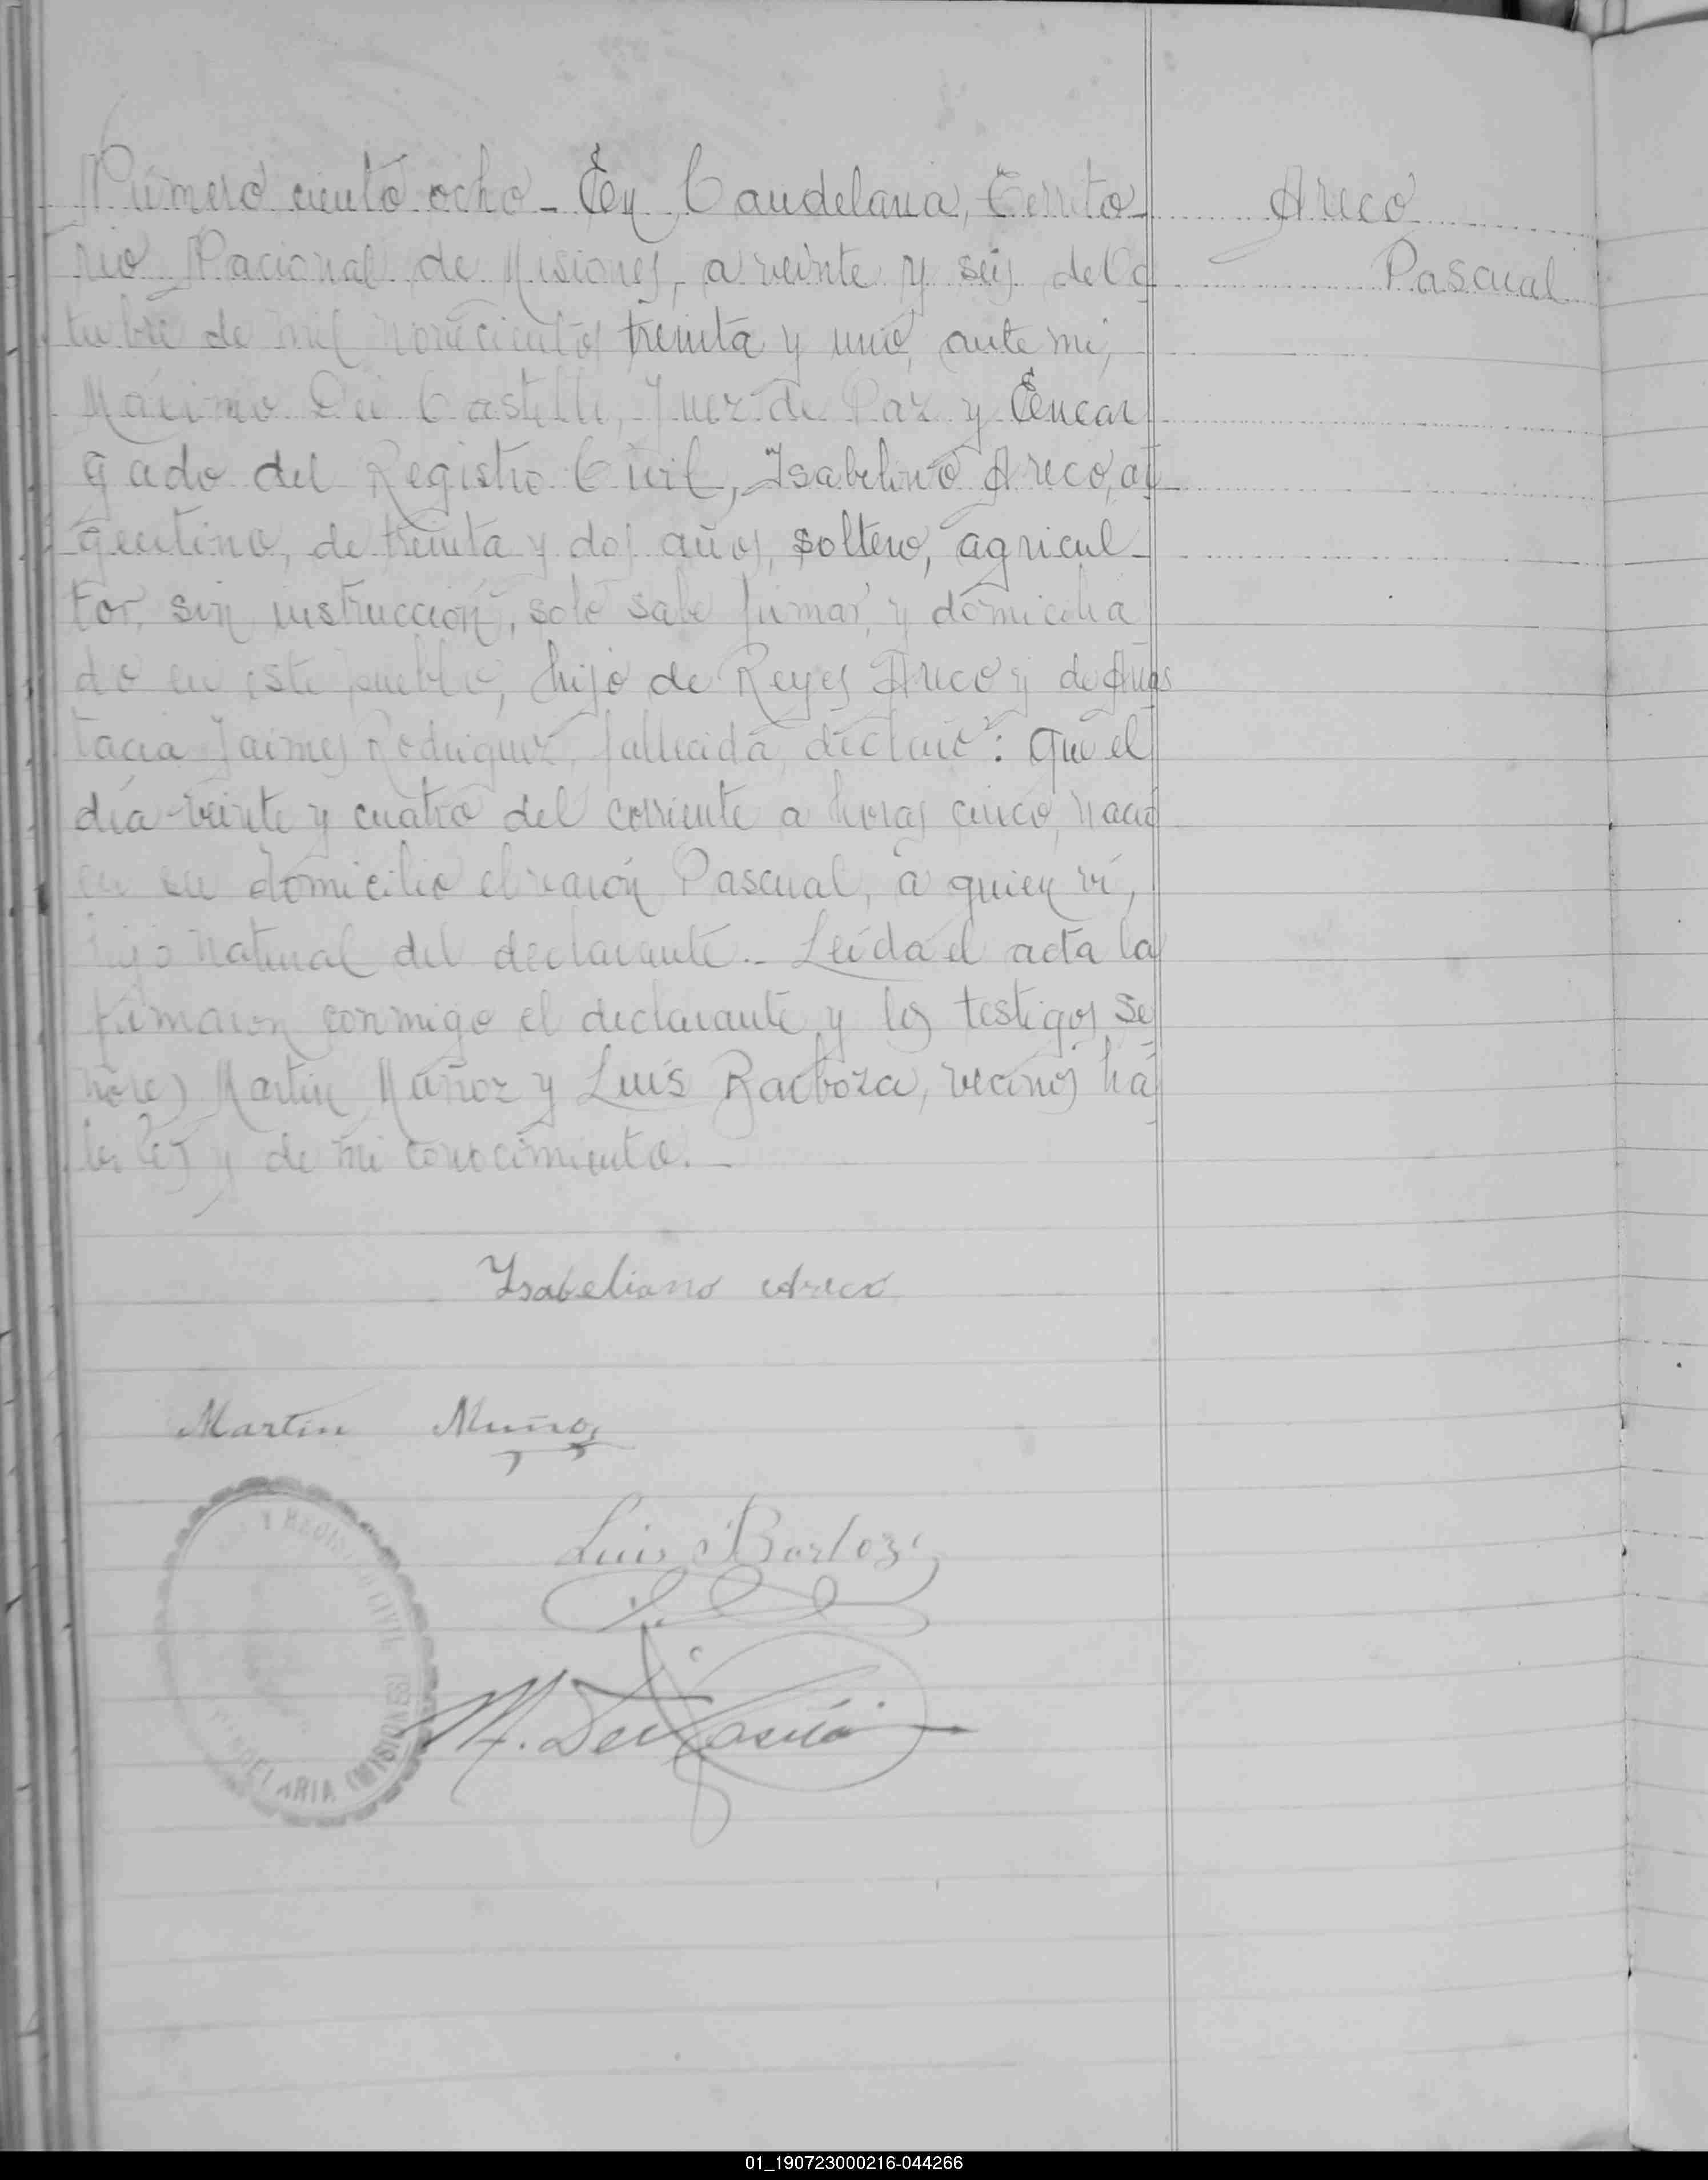 Número ciento ocho - En Candelaria, Territo-
rio Nacional de Misiones, a veinte y seis de Oc
tubre de mil novecientos treinta y uno, ante mi,
Máximo Dei Castelli, Juez de Paz y Encar
gado del Registro Civil, Isabelino Areco, ar
gentino, de treinta y dos años, soltero, agricul-
tor, sin instrucción, solo sabe firmar, y domicilia
do en este pueblo, hijo de Reyes Areco y de Anas
tacia Jaimes Rodriguez, fallecida, declaró: Que el
día veinte y cuatro del corriente a horas cinco, nació
en su domicilio el varón Pascual, a quien ví,
hijo natural del declarante.- Leída el acta la
firmaron conmigo el declarante y los testigos se
ñores Martín Muñoz y Luís Barboza, vecinos há
biles y de mi conocimiento.-
Areco
Pascual
Ysabeliano Areco
Martin Muñoz
Luis Barboza
M. Dei Castelli
Y REGISTRO CIVIL
CANDELARIA (MISIONES)
01_190723000216-044266